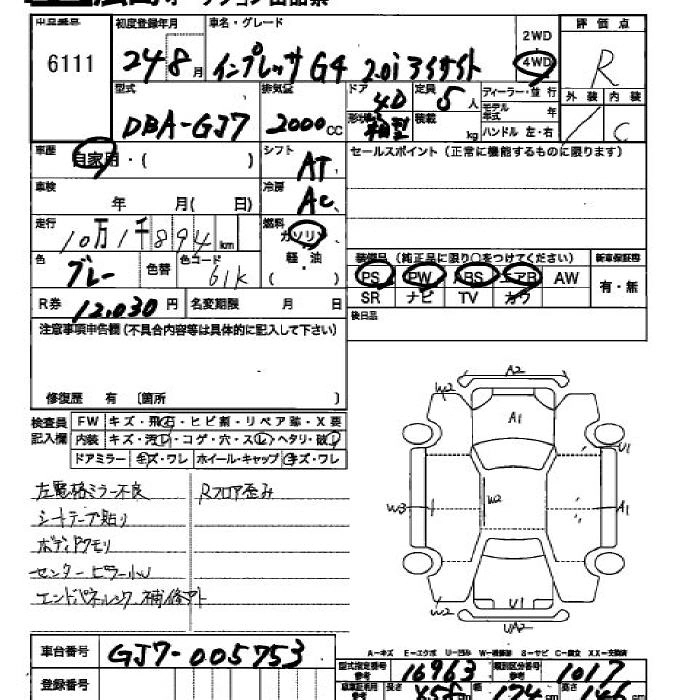 出品番号 初度登録年月 車名・グレード 2WD 評価点
6111 24 8月 インプレッサ G4 2.0i アイサイト 4WD R
型式 排気量 ドア 定員 ディーラー・並行 外装 内装
DBA-GJ7 2000cc 4D 5人 モデル年式 年 C
形状 箱型 積載 kg ハンドル 左・右
車歴 自家用・( ) シフト AT セールスポイント(正常に機能するものに限ります)
車検 年 月( 日) 冷房 AC
走行 10万1千894km 燃料 ガソリン
色 グレー 色替 色コード 61K 軽・油 ( )
装備品 (純正品に限り○をつけてください) 新車保証書
PS PW ABS エアB AW 有・無
SR ナビ TV カワ
R券 12,030円 名変期限 月 日 後日品
注意事項申告欄(不具合内容等は具体的に記入して下さい)
修復歴 有 〔箇所 〕
検査員記入欄 FW キズ・飛石・ヒビ割・リペア跡・X要
内装 キズ・汚レ・コゲ・穴・スレ・ヘタリ・破レ
ドアミラー キズ・ワレ ホイール・キャップ キズ・ワレ
左電格ミラー不良 Rフロア歪み
シートテープ貼り
ボディクモリ
センターピラー小U
エンドパネルシワ 補修アト
A2
W2
A1
U1
W3 W2 A1
W2 U1
UA2
A-キズ E-エクボ U-凹み W-補修跡 S-サビ C-腐食 XX-交換済
車台番号 GJ7-005753
型式指定番号 参考 16963 類別区分番号 参考 1017
登録番号 長さ 458cm 幅 174cm 高さ 146cm